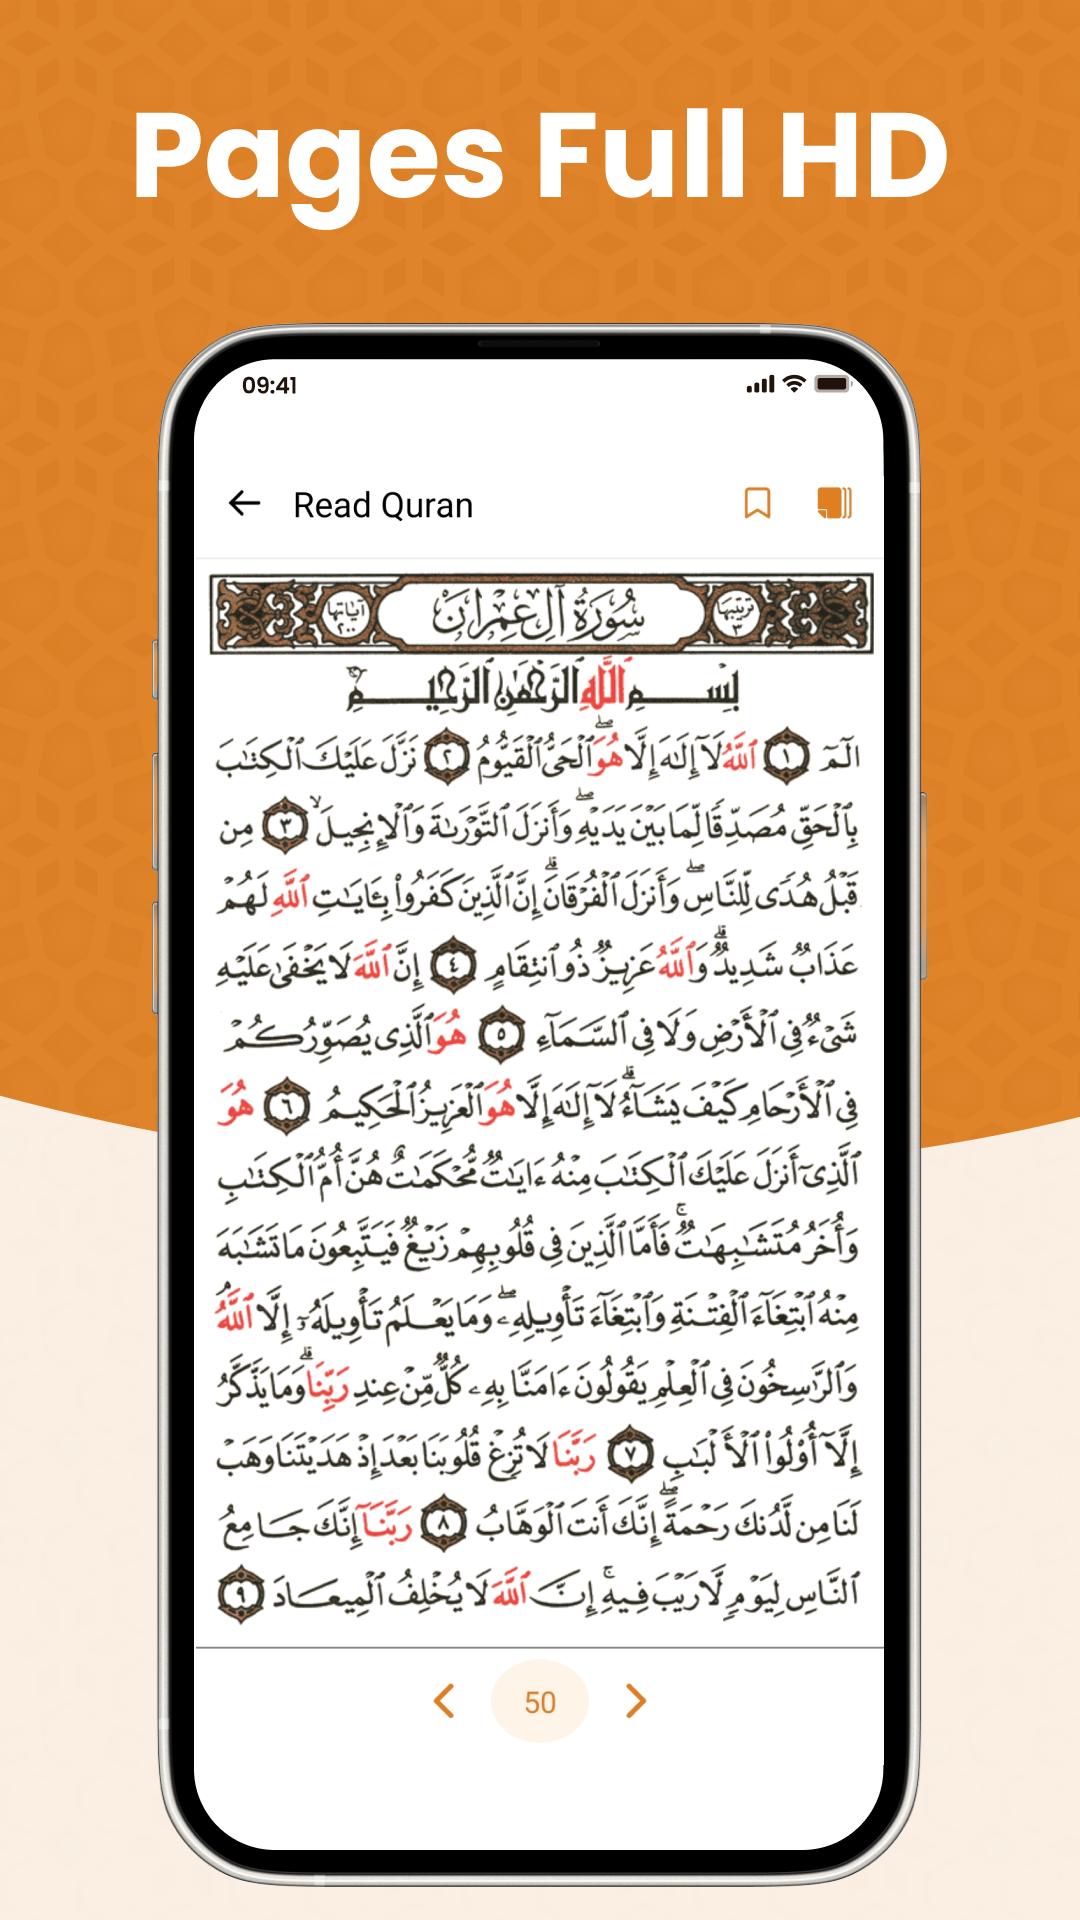 Pages Full HD
09:41
Read Quran
ترتيبها ٣ سُورَةُ آلِ عِمْرَان آياتها ٢٠٠
بِسْمِ ٱللَّهِ ٱلرَّحْمَٰنِ ٱلرَّحِيمِ
الٓمٓ ١ ٱللَّهُ لَآ إِلَٰهَ إِلَّا هُوَۖ ٱلْحَىُّ ٱلْقَيُّومُ ٢ نَزَّلَ عَلَيْكَ ٱلْكِتَٰبَ
بِٱلْحَقِّ مُصَدِّقًا لِّمَا بَيْنَ يَدَيْهِۖ وَأَنزَلَ ٱلتَّوْرَىٰةَ وَٱلْإِنجِيلَۙ ٣ مِن
قَبْلُ هُدًى لِّلنَّاسِۖ وَأَنزَلَ ٱلْفُرْقَانَۗ إِنَّ ٱلَّذِينَ كَفَرُوا۟ بِـَٔايَٰتِ ٱللَّهِ لَهُمْ
عَذَابٌ شَدِيدٌۗ وَٱللَّهُ عَزِيزٌ ذُو ٱنتِقَامٍ ٤ إِنَّ ٱللَّهَ لَا يَخْفَىٰ عَلَيْهِ
شَىْءٌ فِى ٱلْأَرْضِ وَلَا فِى ٱلسَّمَآءِ ٥ هُوَ ٱلَّذِى يُصَوِّرُكُمْ
فِى ٱلْأَرْحَامِ كَيْفَ يَشَآءُۗ لَآ إِلَٰهَ إِلَّا هُوَ ٱلْعَزِيزُ ٱلْحَكِيمُ ٦ هُوَ
ٱلَّذِىٓ أَنزَلَ عَلَيْكَ ٱلْكِتَٰبَ مِنْهُ ءَايَٰتٌ مُّحْكَمَٰتٌ هُنَّ أُمُّ ٱلْكِتَٰبِ
وَأُخَرُ مُتَشَٰبِهَٰتٌۚ فَأَمَّا ٱلَّذِينَ فِى قُلُوبِهِمْ زَيْغٌ فَيَتَّبِعُونَ مَا تَشَٰبَهَ
مِنْهُ ٱبْتِغَآءَ ٱلْفِتْنَةِ وَٱبْتِغَآءَ تَأْوِيلِهِۦۖ وَمَا يَعْلَمُ تَأْوِيلَهُۥٓ إِلَّا ٱللَّهُۗ
وَٱلرَّٰسِخُونَ فِى ٱلْعِلْمِ يَقُولُونَ ءَامَنَّا بِهِۦ كُلٌّ مِّنْ عِندِ رَبِّنَاۗ وَمَا يَذَّكَّرُ
إِلَّآ أُو۟لُوا۟ ٱلْأَلْبَٰبِ ٧ رَبَّنَا لَا تُزِغْ قُلُوبَنَا بَعْدَ إِذْ هَدَيْتَنَا وَهَبْ
لَنَا مِن لَّدُنكَ رَحْمَةًۖ إِنَّكَ أَنتَ ٱلْوَهَّابُ ٨ رَبَّنَآ إِنَّكَ جَامِعُ
ٱلنَّاسِ لِيَوْمٍ لَّا رَيْبَ فِيهِۚ إِنَّ ٱللَّهَ لَا يُخْلِفُ ٱلْمِيعَادَ ٩
50